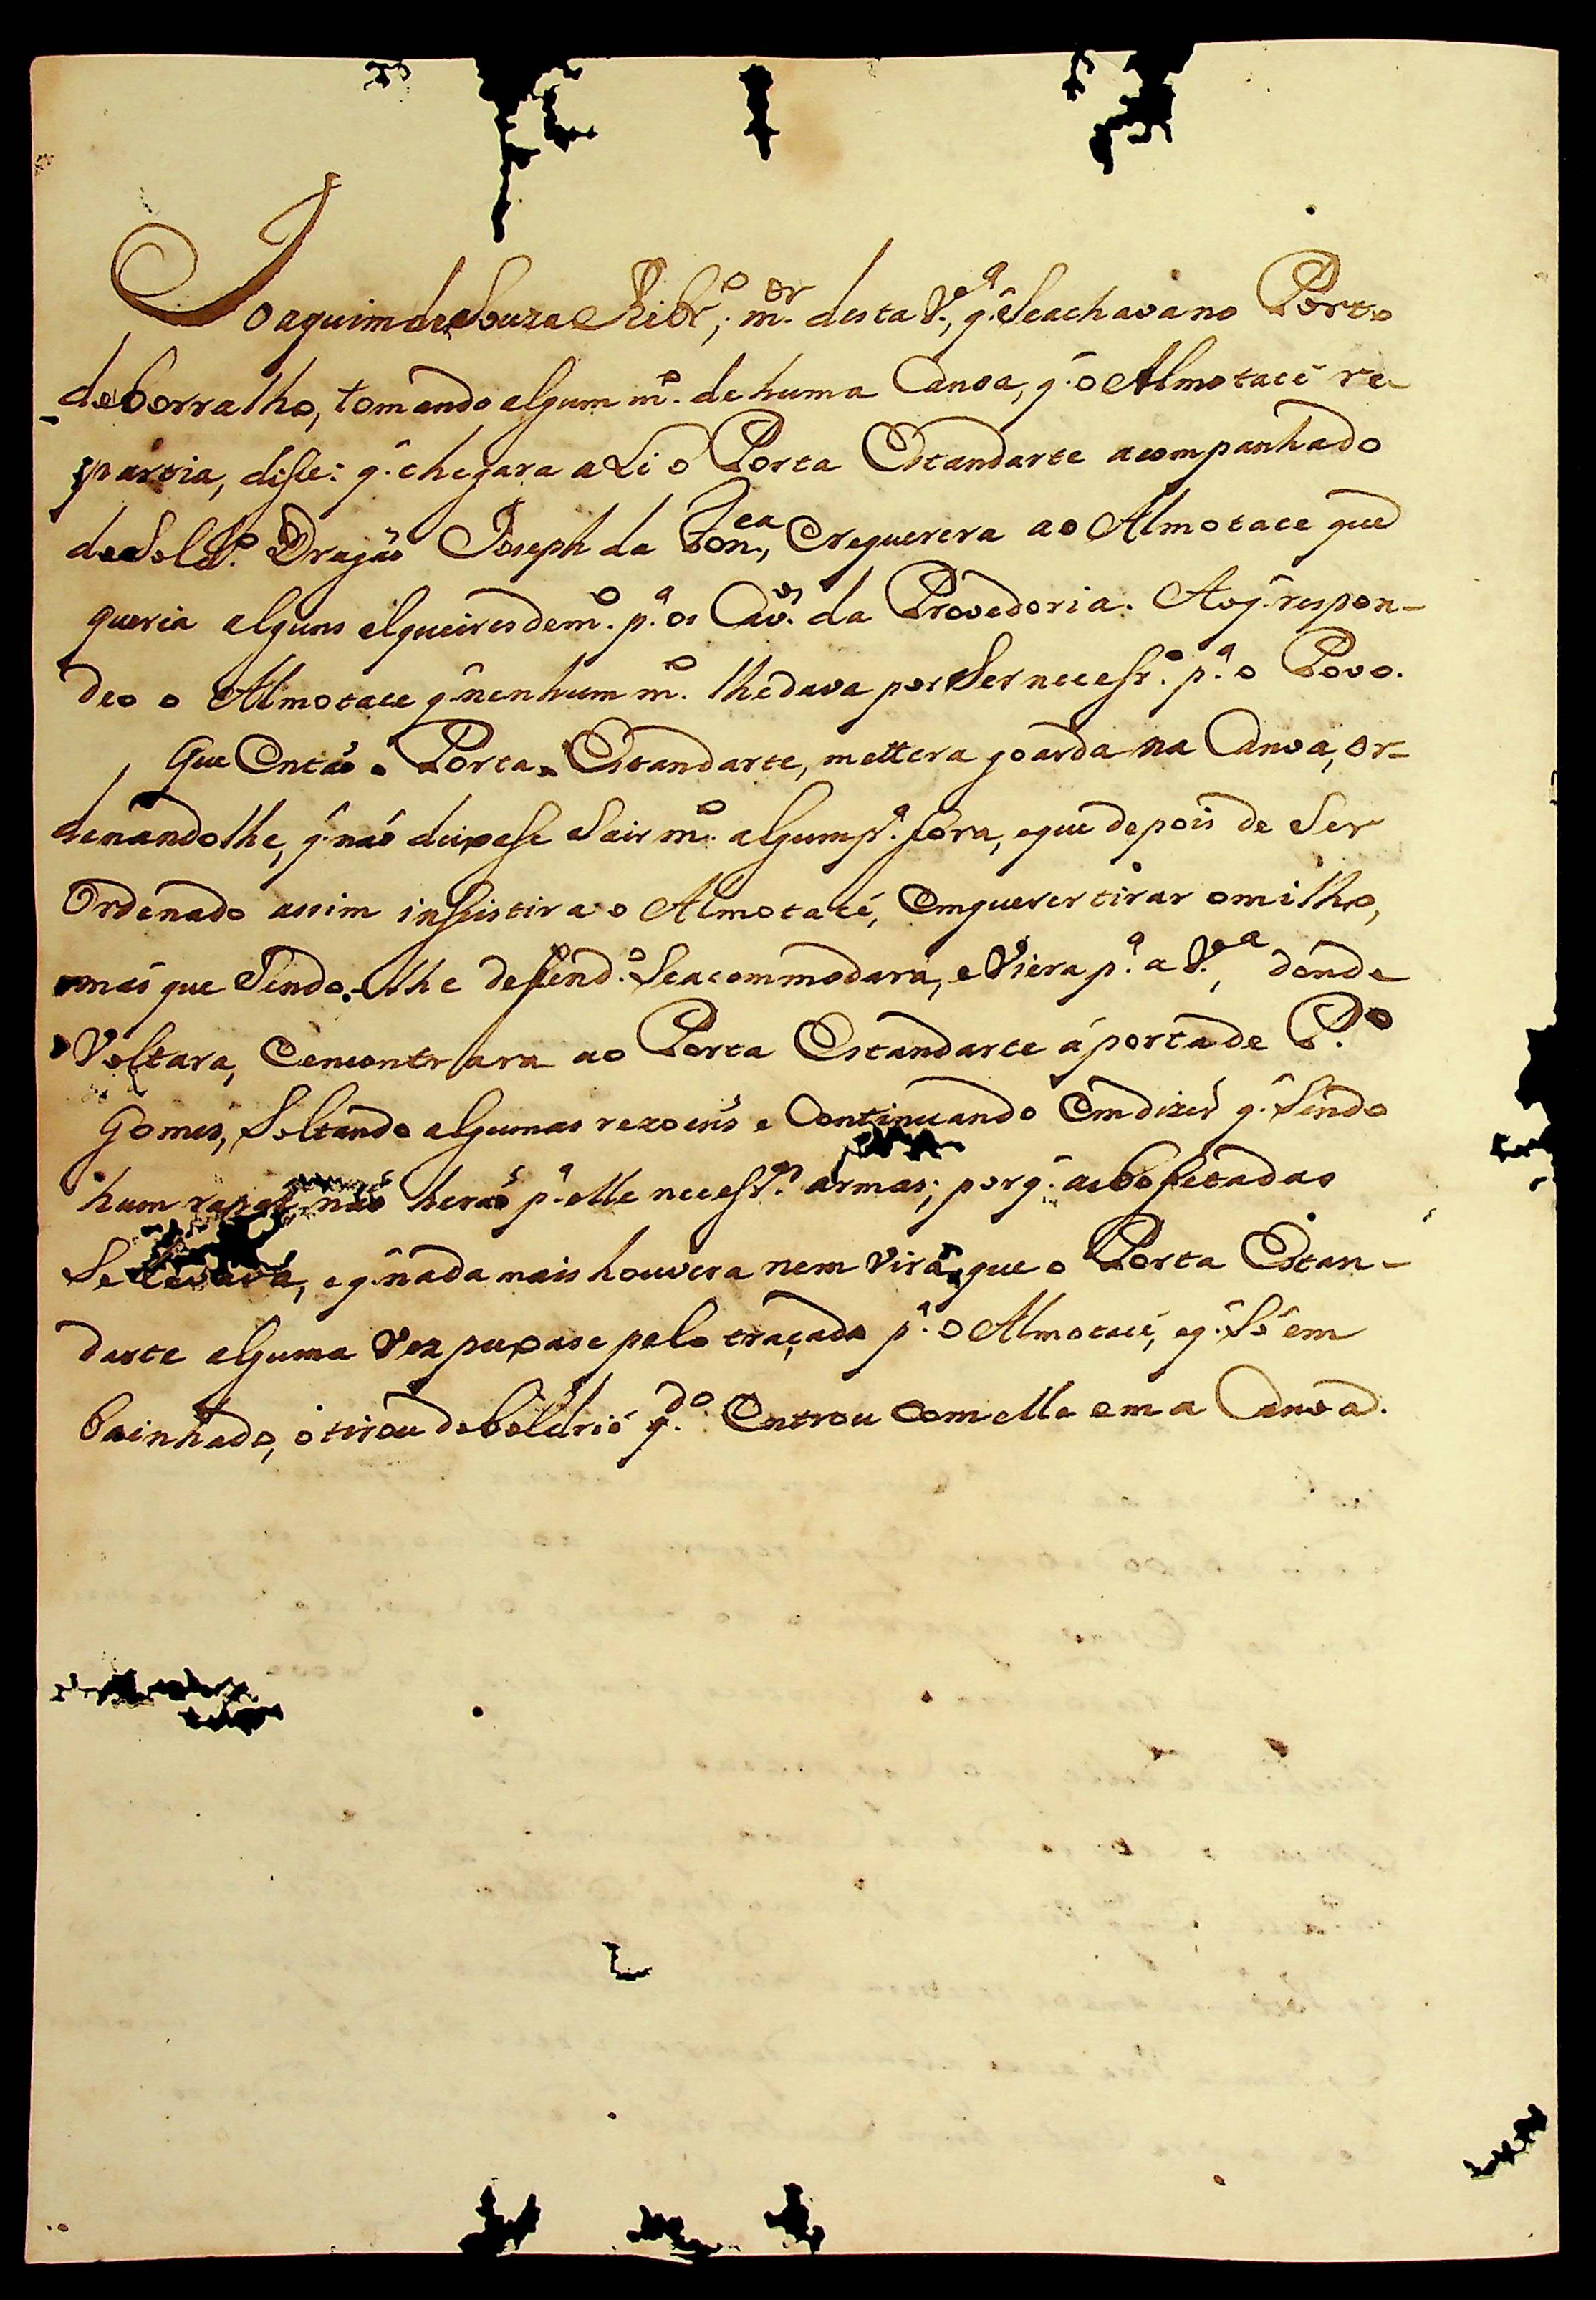 Joaquim de Souza Ribr.º, m.or desta V.ª, q. Se achava no Porto
do borralho, tomando algum m.º de huma Canoa, q. o Almotacé re-
partia, disse: q. chegara aLi o Porta Estandarte acompanhado
do Sold.º Dragão Joseph da Fon.ca, e requerera ao Almotace que
queria alguns alqueires de m.º p.ª os Cav.os da Provedoria. Ao q. respon-
deo o Almotace q. nenhum m.º lhe dava por Ser necessr.º p.ª o Povo.
Que Então o Porta Estandarte, mettera goarda na Canoa, or-
denandolhe, q. não deixase Sair m.º algum p.ª fóra, e que depois de Ser
Ordenado assim insistira o Almotacé, Em querer tirar o milho,
mas que Sendo-lhe defend.º Se acommodara, e Viera p.ª a V.ª, donde
Voltara, e encontrara ao Porta Estandarte á porta de P.º
Gomes, Soltando algumas rezoens e Continuando Em dizer q. Sendo
hum rapaz não herão p.ª elle necessr.as armas; porq. as bofetadas
Se Levava, e q. nada mais houvera nem virá, que o Porta Estan-
darte alguma Vez puxase pelo traçado p.ª o Almotacé, e q. Só em
bainhado, o tirou do boldrié q.do Entrou Com elle em a Canoa.